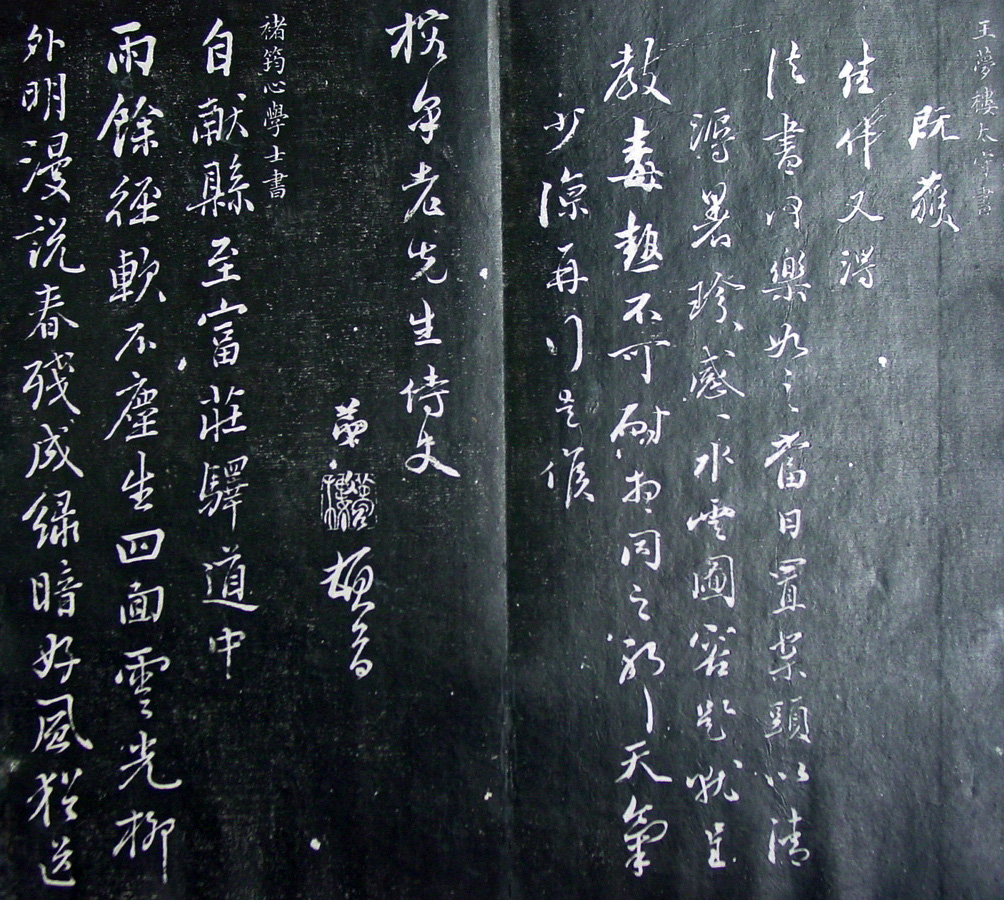 王夢樓太守書
既獲
佳作又得
法書何樂如之當日置案頭以清
溽暑珍感珍感水雲圖容題就呈
教毒熱不可耐想同之稍天氣
少涼再行走候
榕皋老先生侍史
夢樓頓首
褚筠心學士書
自獻縣至富莊驛道中
雨餘徑軟不塵生四面雲光柳
外明漫說春殘成綠暗好風猶送